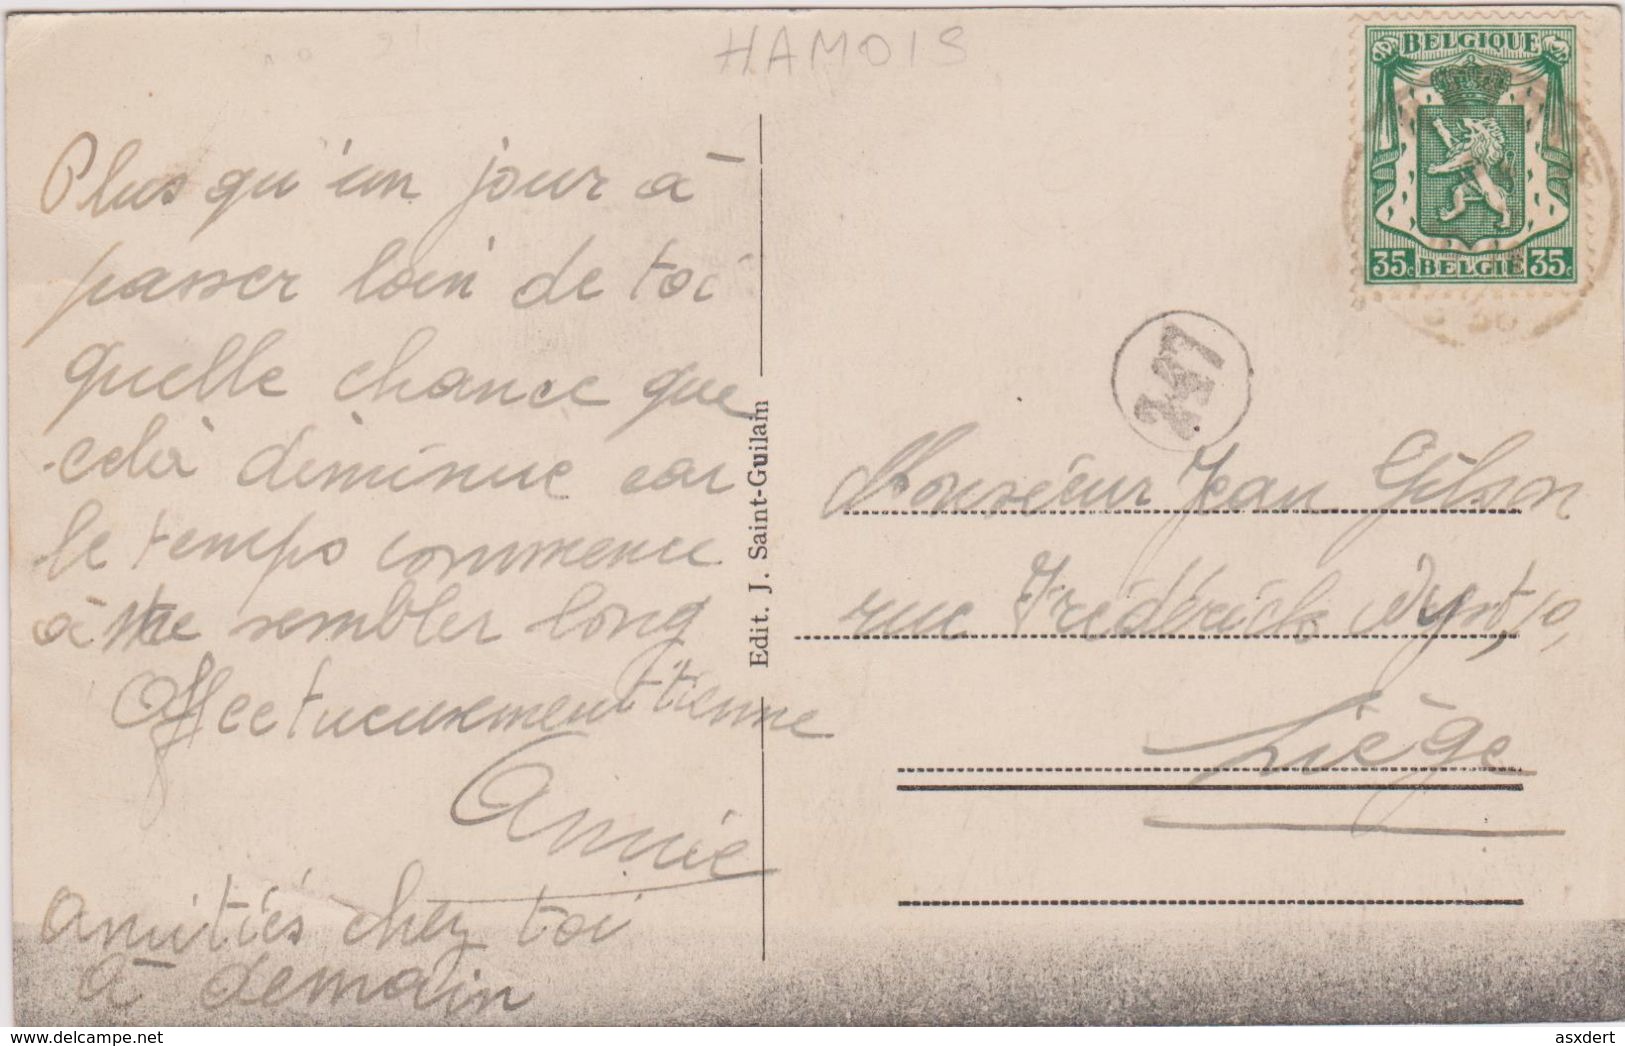 HAMOIS
Plus qu'un jour à
passer loin de toi
quelle chance que
celà diminue car
le temps commence
à me sembler long
Affectueusement tienne
Annie
Amitiés chez toi
à demain
Edit. J. Saint-Guilain
BELGIQUE
35c BELGIE 35c
36
247
Monsieur Jean Gilson
rue Frédérick Nyst, 10,
Liège
www.delcampe.net
asxdert